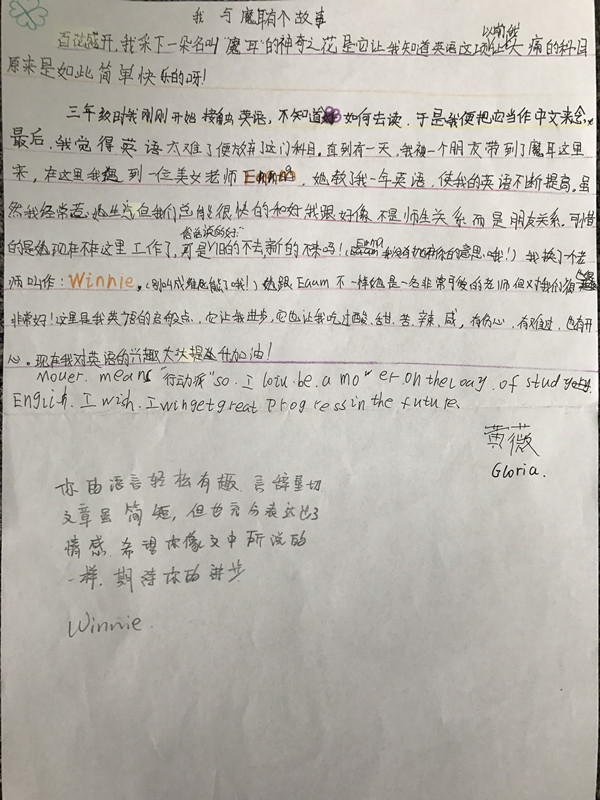 我与魔耳有个故事
百花盛开,我采下一朵名叫“魔耳”的神奇之花是它让我知道英语这项以前让我头痛的科目
原来是如此简单快乐的呀!
三年级时我刚刚开始接触英语,不知道如何去读.于是我便把应当作中文来念,
最后,我觉得英语太难了便放弃了这门科目.直到有一天,我被一个朋友带到了魔耳这里
来,在这里我遇到一位美女老师 她教了我一年英语,使我的英语不断提高,虽
然我经常惹她生气但我们总能很快的和好我跟好像不是师生关系而是朋友关系.可惜
的是她现在不在这里工作了,可是旧的不去,新的不来吗!( 我没有 你的意思哦!)我换了个老
师叫作:Winnie,( )她跟Eaum不一样她是一名非常可爱的老师但对我们
非常好!这里是我英语的启发点,它让我进步,它也让我吃过酸、甜、苦、辣、咸,有伤心,有难过,也有开
心.现在我对英语的兴趣大大提升加油!
Mouer. means “行动派”so. I be. a mo er on the of study
English. I wish. I get great progress in the future.
黄薇
Gloria.
你的语言轻松有趣.言辞亲切
文章虽简短,但也充分表达出了
情感.希望你像文中所说的
一样.期待你的进步
Winnie.